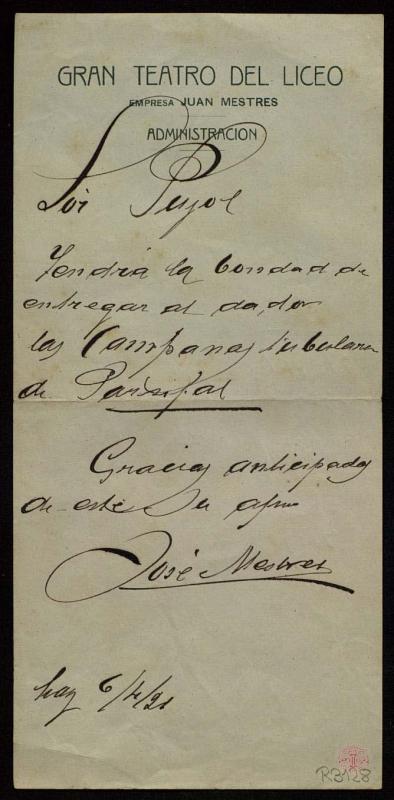 GRAN TEATRO DEL LICEO
EMPRESA JUAN MESTRES
ADMINISTRACION
Sor Pujol
Tendria la bondad de
entregar al dador
las Campanas tubulares
de Parsifal
Gracias anticipadas
de este Su afmo
José Mestres
hoy 6/4/21
R3128